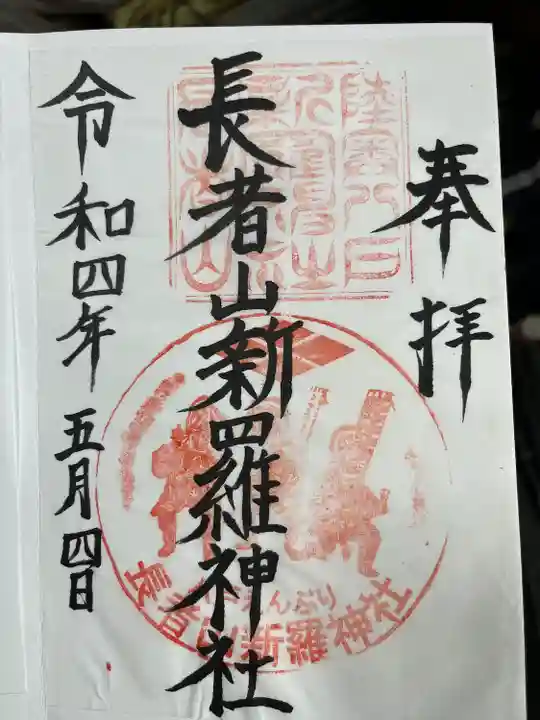 奉拝
長者山新羅神社
令和四年五月四日
えんぶり
長者山新羅神社